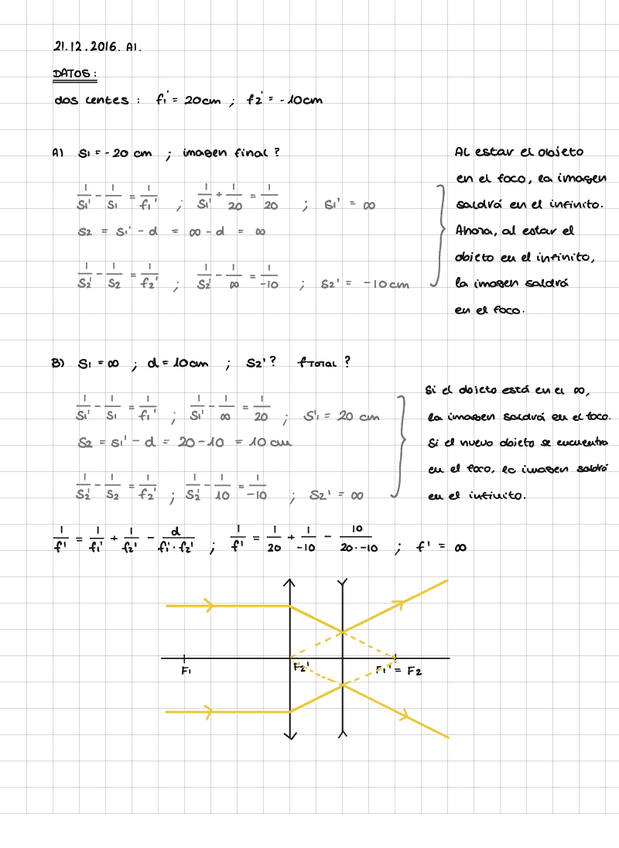 21.12.2016. A1.
DATOS:
dos lentes : f1' = 20cm ; f2' = -10cm
A) S1 = -20 cm ; imagen final ?
1/S1' - 1/S1 = 1/f1' ; 1/S1' + 1/20 = 1/20 ; S1' = ∞
S2 = S1' - d = ∞ - d = ∞
1/S2' - 1/S2 = 1/f2' ; 1/S2' - 1/∞ = 1/-10 ; S2' = -10cm
Al estar el objeto
en el foco, la imagen
saldrá en el infinito.
Ahora, al estar el
objeto en el infinito,
la imagen saldrá
en el foco.
B) S1 = ∞ ; d = 10cm ; S2'? fTOTAL ?
1/S1' - 1/S1 = 1/f1' ; 1/S1' - 1/∞ = 1/20 ; S'1 = 20 cm
S2 = S1' - d = 20 - 10 = 10 cm
1/S2' - 1/S2 = 1/f2' ; 1/S2' - 1/10 = 1/-10 ; S2' = ∞
Si el objeto está en el ∞,
la imagen saldrá en el foco.
Si el nuevo objeto se encuentra
en el foco, la imagen saldrá
en el infinito.
1/f' = 1/f1' + 1/f2' - d/f1'·f2' ; 1/f' = 1/20 + 1/-10 - 10/20·-10 ; f' = ∞
F1 F2' F1' = F2